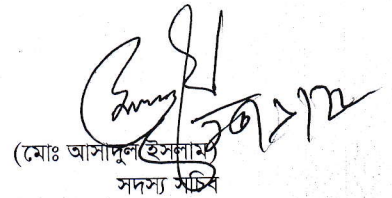 (মোঃ আসাদুল ইসলাম)
সদস্য সচিব